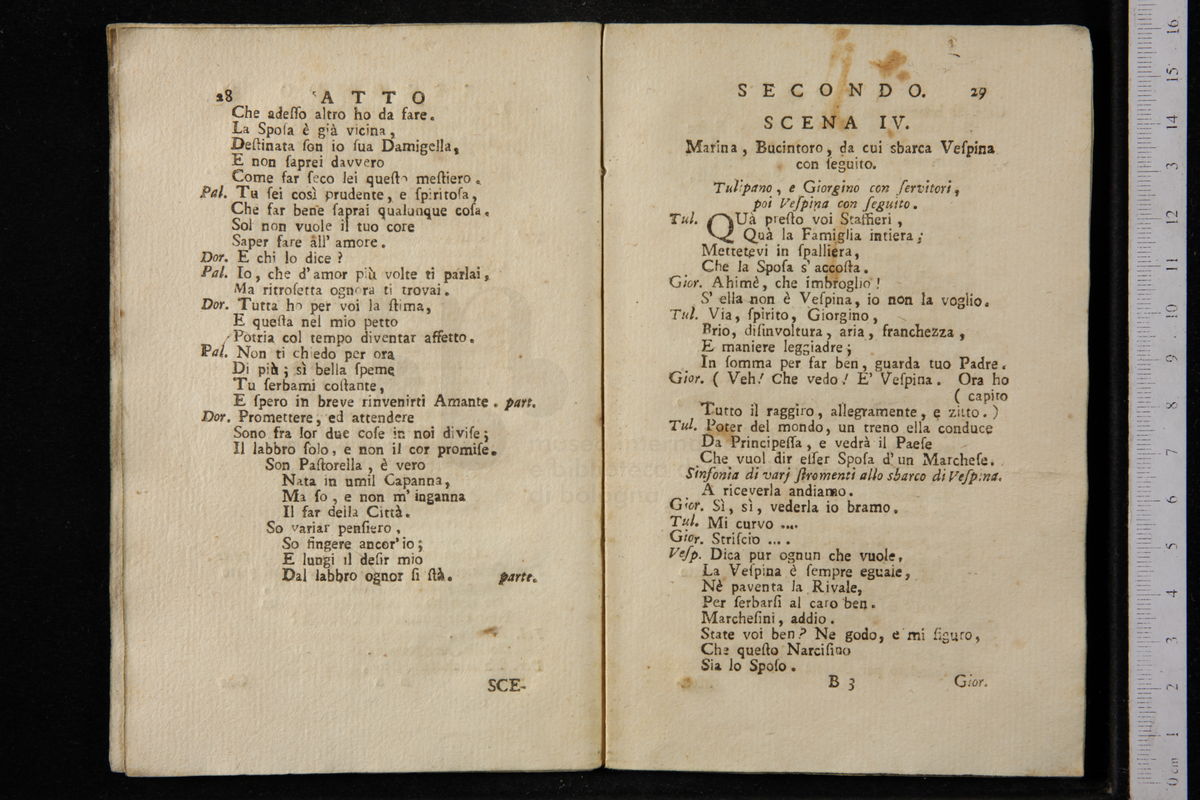 28 ATTO
Che adeſſo altro ho da fare.
La Spoſa è già vicina,
Deſtinata ſon io ſua Damigella,
E non ſaprei davvero
Come far ſeco lei queſto meſtiero.
Pal. Tu ſei così prudente, e ſpiritoſa,
Che far bene ſaprai qualunque coſa.
Sol non vuole il tuo core
Saper fare all' amore.
Dor. E chi lo dice?
Pal. Io, che d'amor più volte ti parlai,
Ma ritroſetta ognora ti trovai.
Dor. Tutta ho per voi la ſtima,
E queſta nel mio petto
Potria col tempo diventar affetto.
Pal. Non ti chiedo per ora
Di più; sì bella ſpeme
Tu ſerbami coſtante,
E ſpero in breve rinvenirti Amante. part.
Dor. Promettere, ed attendere
Sono fra lor due coſe in noi diviſe;
Il labbro ſolo, e non il cor promiſe.
Son Paſtorella, è vero
Nata in umil Capanna,
Ma ſo, e non m' inganna
Il far della Città.
So variar penſiero,
So fingere ancor' io;
E lungi il deſir mio
Dal labbro ognor ſi ſtà. parte.
SCE-
SECONDO. 29
SCENA IV.
Marina, Bucintoro, da cui sbarca Veſpina
con ſeguito.
Tulipano, e Giorgino con ſervitori,
poi Veſpina con ſeguito.
Tul. QUà preſto voi Staffieri,
Quà la Famiglia intiera;
Mettetevi in ſpalliera,
Che la Spoſa s' accoſta.
Gior. Ahimè, che imbroglio!
S' ella non è Veſpina, io non la voglio.
Tul. Via, ſpirito, Giorgino,
Brio, diſinvoltura, aria, franchezza,
E maniere leggiadre;
In ſomma per far ben, guarda tuo Padre.
Gior. ( Veh! Che vedo! E' Veſpina. Ora ho
( capito
Tutto il raggiro, allegramente, e zitto.)
Tul. Poter del mondo, un treno ella conduce
Da Principeſſa, e vedrà il Paeſe
Che vuol dir eſſer Spoſa d'un Marcheſe.
Sinfonia di varj ſtromenti allo sbarco di Veſpina.
A riceverla andiamo.
Gior. Sì, sì, vederla io bramo.
Tul. Mi curvo ....
Gior. Striſcio ....
Veſp. Dica pur ognun che vuole,
La Veſpina è ſempre eguale,
Nè paventa la Rivale,
Per ſerbarſi al caro ben.
Marcheſini, addio.
State voi ben? Ne godo, e mi figuro,
Che queſto Narciſino
Sia lo Spoſo.
B 3 Gior.